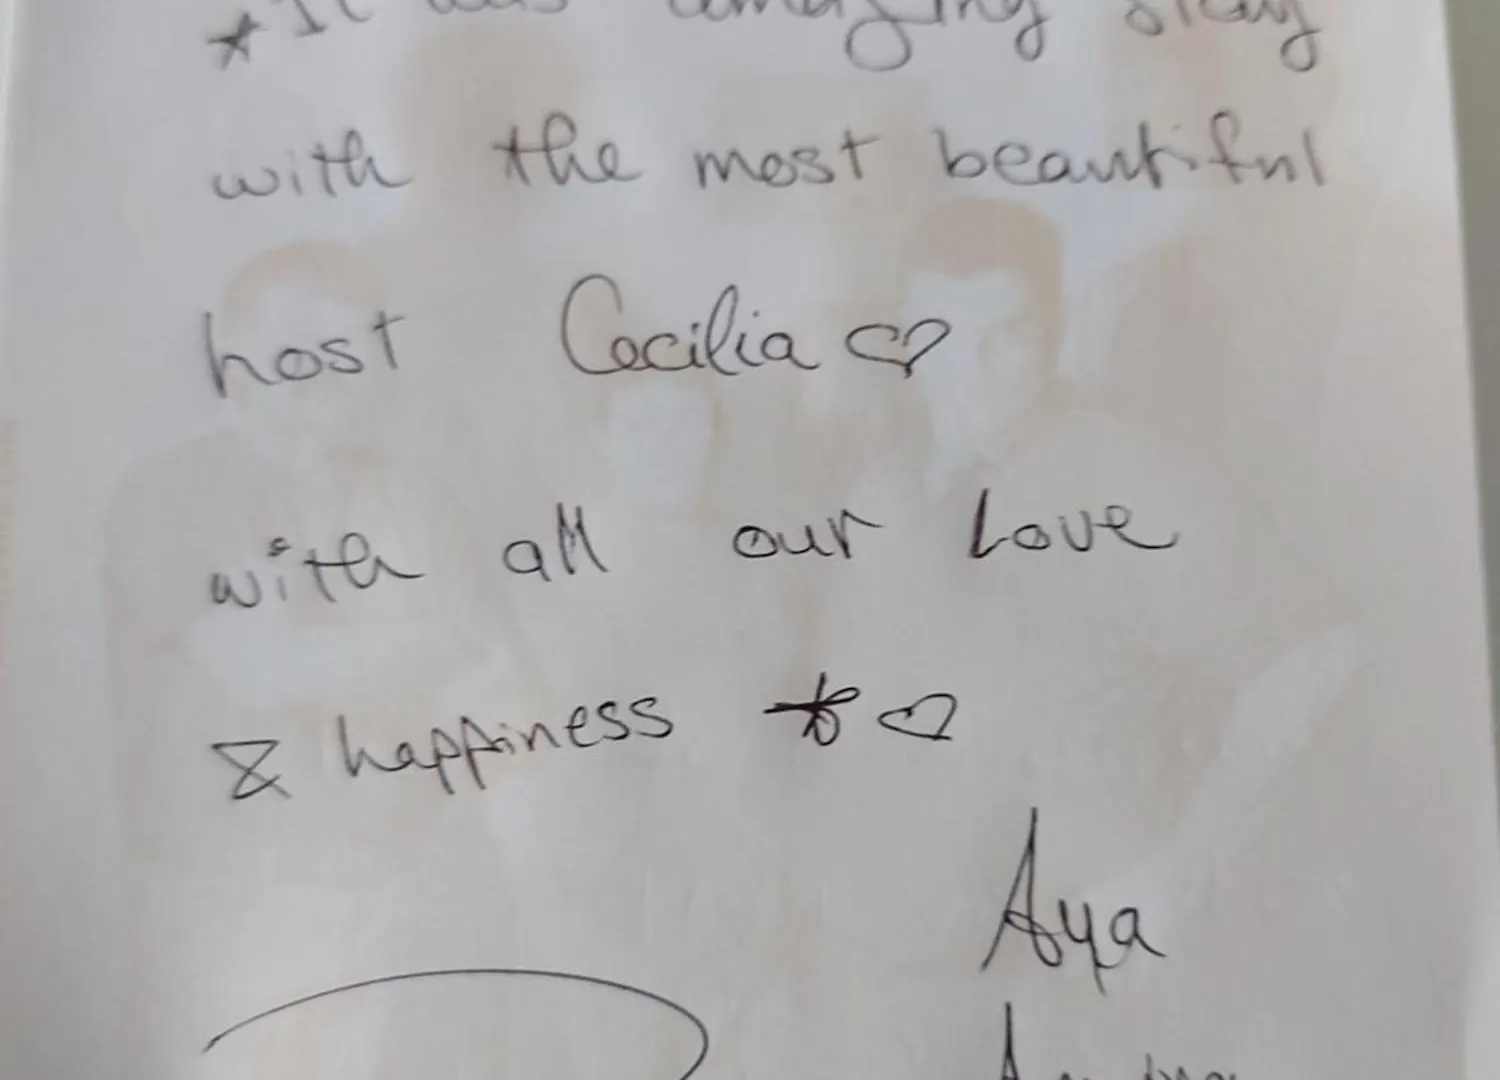 *It was amazing stay
with the most beautiful
host Cecilia ♡
with all our Love
& happiness ♡
Aya